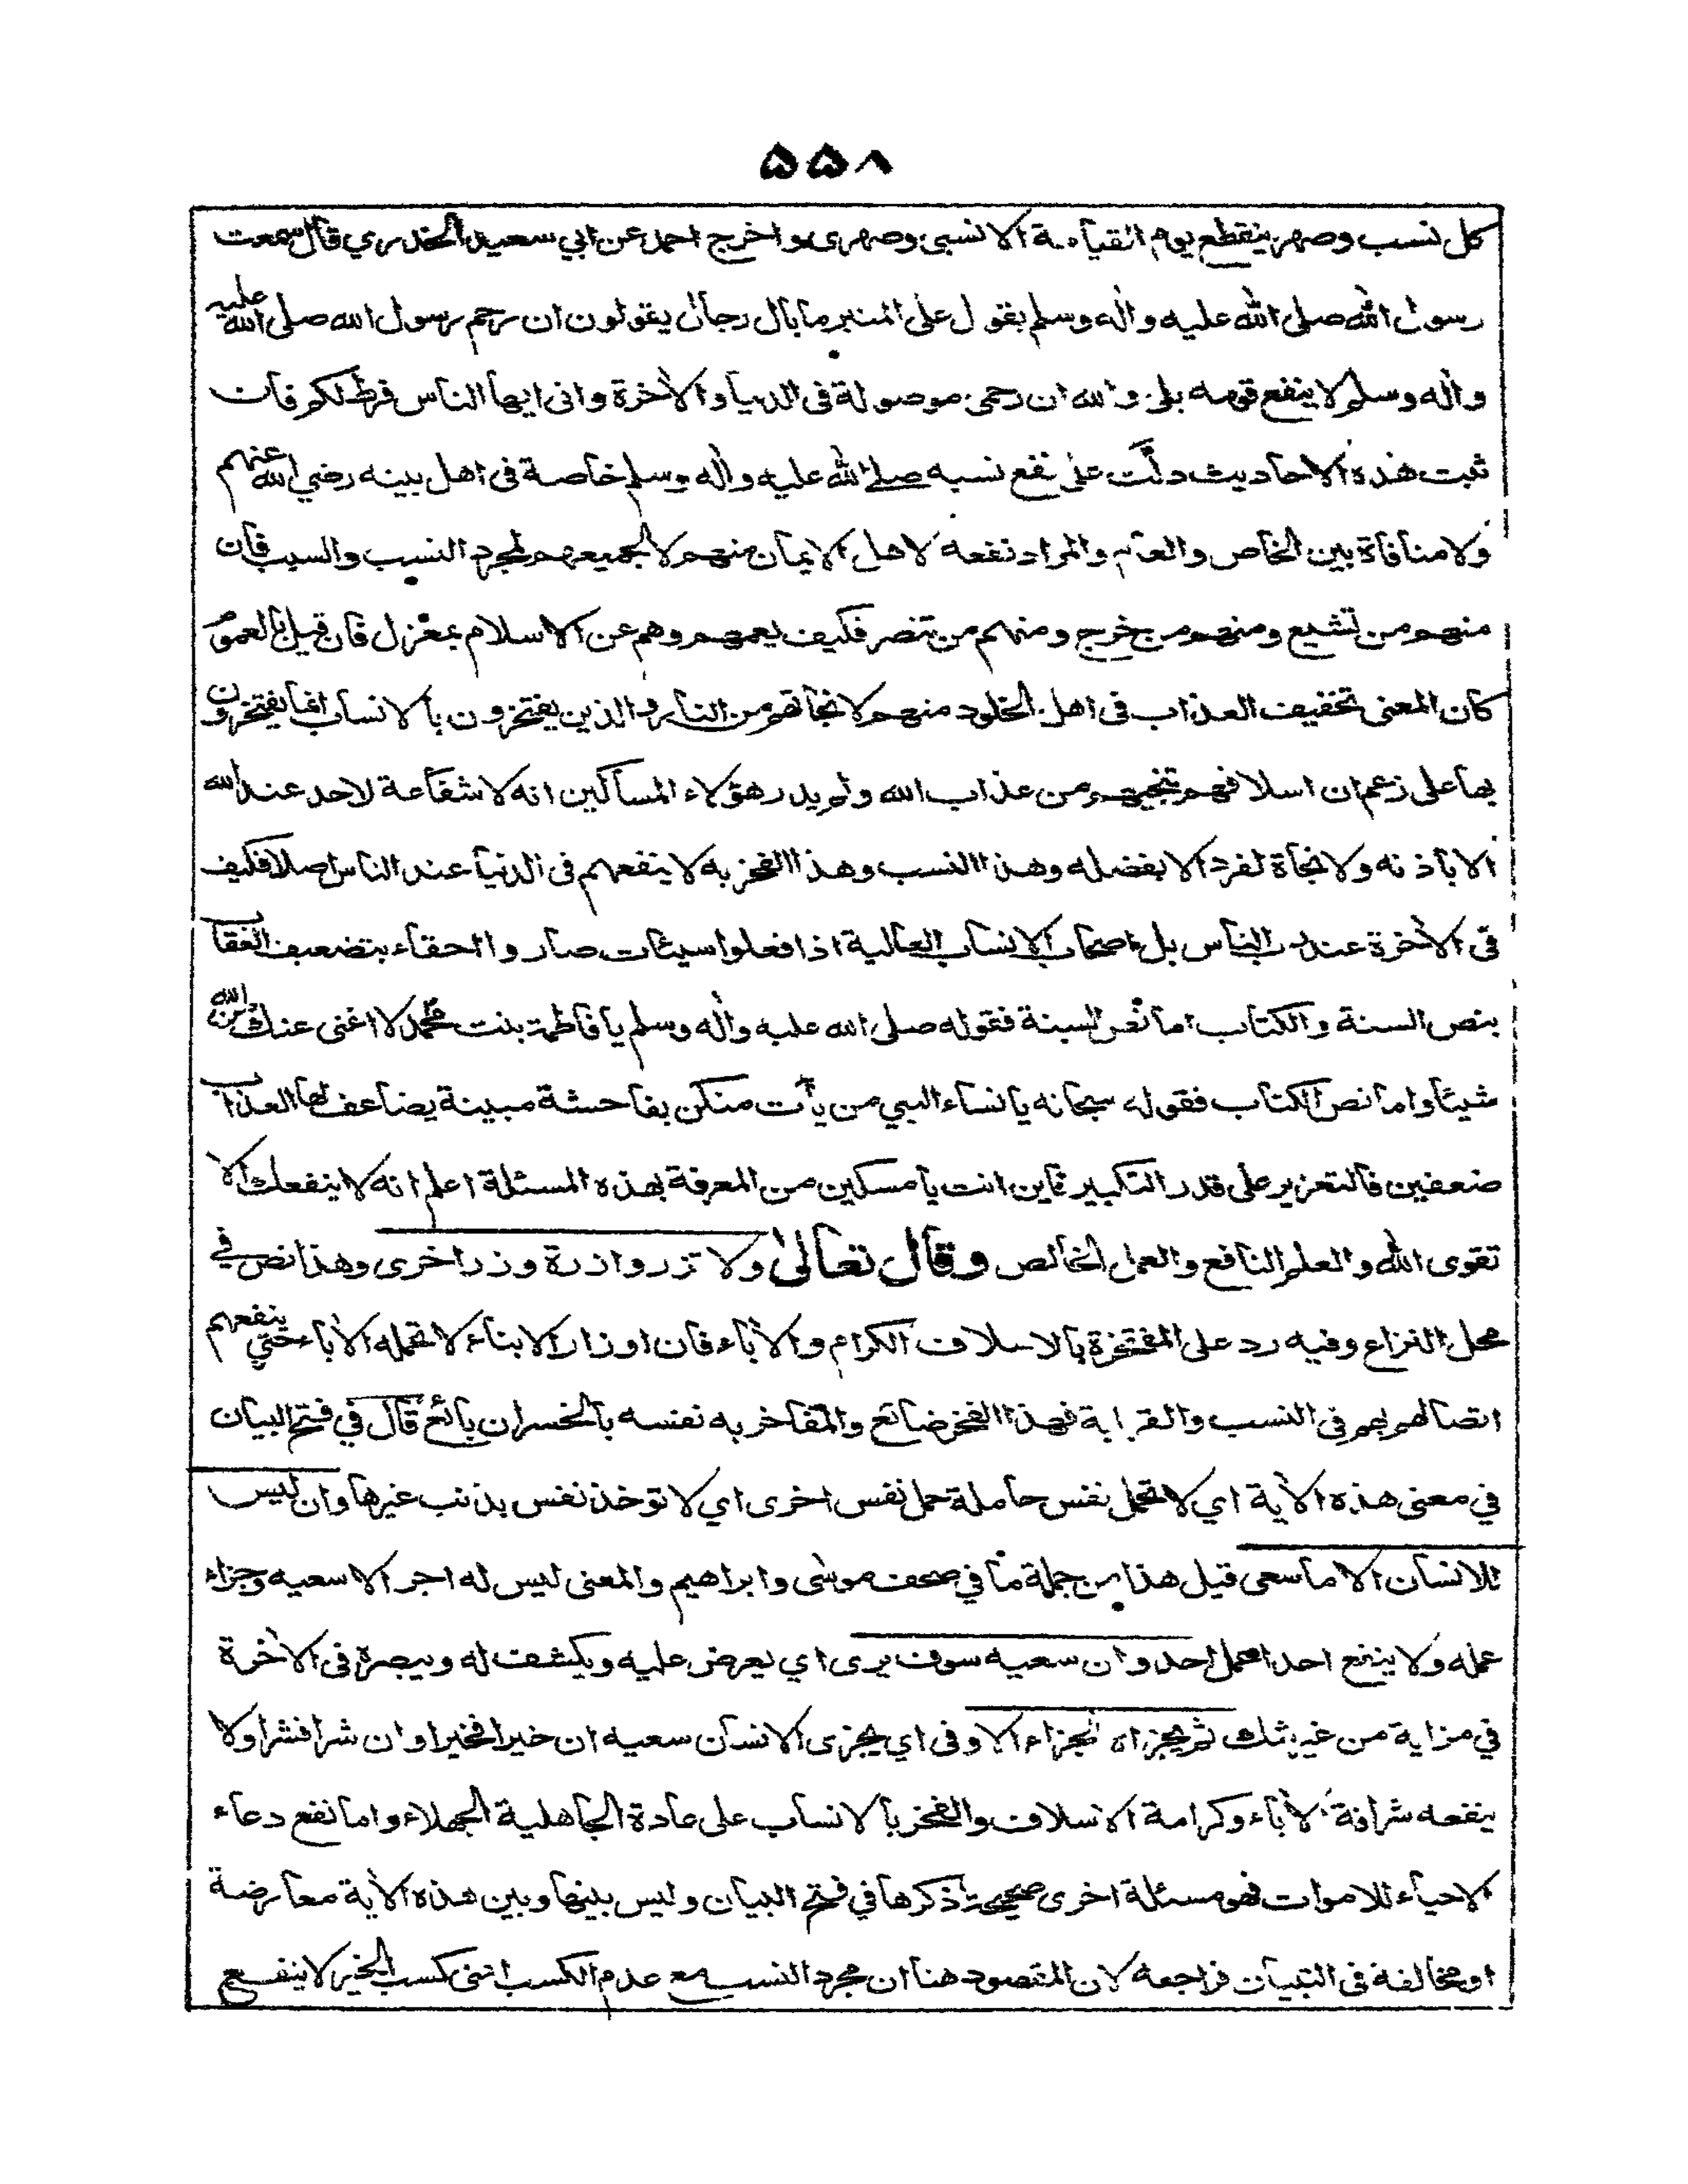 ۵۵۸
كل نسب وصهر ينقطع يوم القيامة الا نسبى وصهرى واخرج احمد عن ابي سعيد الخدري قال سمعت
رسول الله صلى الله عليه واله وسلم يقول على المنبر ما بال رجال يقولون ان رحم رسول الله صلى الله عليه
واله وسلم لا ينفع قومه بلى والله ان رحمى موصولة فى الدنيا والاخرة وانى ايها الناس فرط لكم فان
ثبت هذه الاحاديث دلت على نفع نسبه صلى الله عليه واله وسلم خاصة فى اهل بيته رضي الله عنهم
ولا منافاة بين الخاص والعام والمراد نفعه لاهل الايمان منهم لا لجميعهم لمجرد النسب والسبب فان
منهم من تشيع ومنهم من خرج ومنهم من تنصر فكيف يعمهم وهم عن الاسلام بمعزل فان قيل بالعموم
كان المعنى تخفيف العذاب فى اهل الخلود منهم لا نجاتهم من النار والذين يفتخرون بالانساب انما يفتخرون
بها على زعم ان اسلافهم تنجيهم من عذاب الله ولم يدر هؤلاء المساكين انه لا شفاعة لاحد عند الله
الا باذنه ولا نجاة لفرد الا بفضله وهذا النسب وهذا الفخر به لا ينفعهم فى الدنيا عند الناس اصلا فكيف
فى الاخرة عند رب الناس بل اصحاب الانساب العالية اذا فعلوا سيئات صاروا احقاء بتضعيف العقاب
بنص السنة والكتاب اما نص السنة فقوله صلى الله عليه واله وسلم يا فاطمة بنت محمد لا اغنى عنك من الله
شيئا واما نص الكتاب فقوله سبحانه يا نساء النبي من يأت منكن بفاحشة مبينة يضاعف لها العذاب
ضعفين فالتعزير على قدر التكبير فاين انت يا مسكين من المعرفة بهذه المسئلة اعلم انه لا ينفعك الا
تقوى الله والعلم النافع والعمل الخالص وقال تعالى ولا تزر وازرة وزر اخرى وهذا نص في
محل النزاع وفيه رد على المفتخرة بالاسلاف الكرام والاباء فان اوزار الابناء لا تحمله الاباء حتي ينفعهم
اتصالهم بهم فى النسب والقرابة فهذا الفخر ضائع والمفاخر به نفسه بالخسران بائع قال في فتح البيان
في معنى هذه الاية اي لا تحمل نفس حاملة حمل نفس اخرى اي لا توخذ نفس بذنب غيرها وان ليس
للانسان الا ما سعى قيل هذا من جملة ما في صحف موسى وابراهيم والمعنى ليس له اجر الا سعيه وجزاء
عمله ولا ينفع احدا عمل احد وان سعيه سوف يرى اي يعرض عليه ويكشف له ويبصره فى الاخرة
في مزاية من غير شك ثم يجزاه الجزاء الاوفى اي يجزى الانسان سعيه ان خيرا فخيرا وان شرا فشرا ولا
ينفعه شرافة الاباء وكرامة الاسلاف والفخر بالانساب على عادة الجاهلية الجهلاء واما نفع دعاء
الاحياء للاموات فهو مسئلة اخرى صحيحة ذكرها في فتح البيان وليس بينها وبين هذه الاية معارضة
او مخالفة فى التبيان فراجعه لان المقصود هنا ان مجرد النسب مع عدم الكسب اعنى كسب الخير لا ينفع